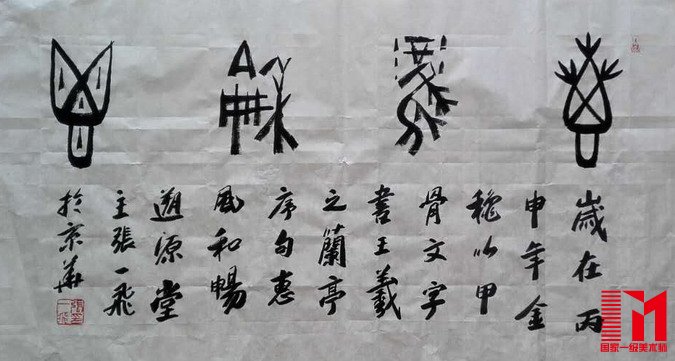 惠風和暢
歲在丙
申年金
穐以甲
骨文字
書王羲
之蘭亭
序句惠
風和暢
遡源堂
主張一飛
於京華
国家一级美术师